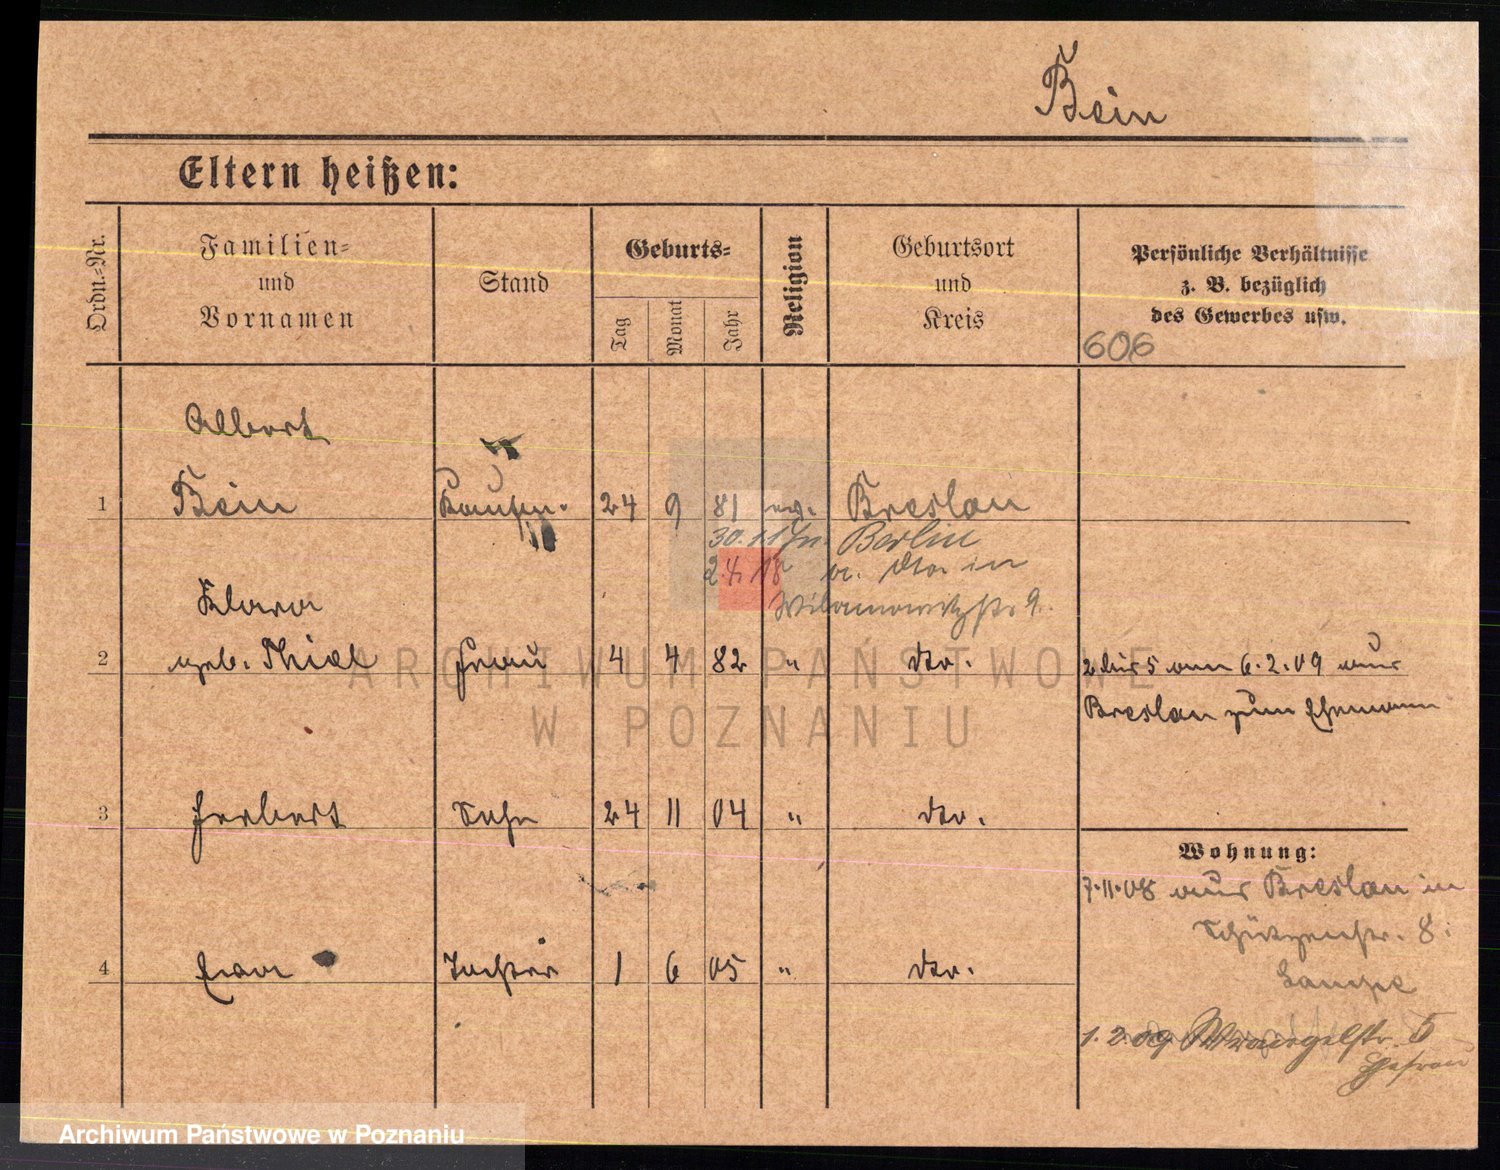 Bein
Eltern heißen:
Ordn.-Nr.
Familien-
und
Vornamen
Stand
Geburts-
Tag
Monat
Jahr
Religion
Geburtsort
und
Kreis
Persönliche Verhältnisse
z. B. bezüglich
des Gewerbes usw.
606
Albert
1 Bein Kaufm. 24 9 81 Breslau
30.11 Berlin
2.4.18 dto in
Wilamowitzstr 9.
Klara
2 geb. Thiel Frau 4 4 82 " dto. 2 bis 5 am 6.2.09 aus
Breslau zum Ehemann
3 Herbert Sohn 24 11 04 " dto.
Wohnung:
7.11.08 aus Breslau in
Schützenstr. 8
4 Tochter 1 6 05 " dto.
1.2.09 Wrangelstr. 5
ARCHIWUM PAŃSTWOWE
W POZNANIU
Archiwum Państwowe w Poznaniu